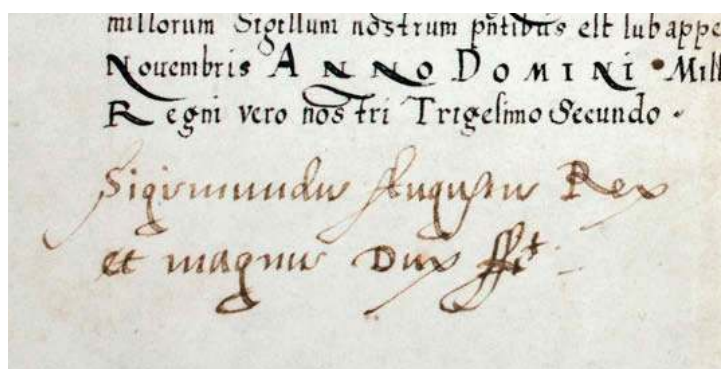 millorum Sigillum nostrum pñtibus est subappe
Nouembris ANNO DOMINI Mill
Regni vero nostri Trigesimo Secundo.
Sigismundus Augustus Rex
et magnus Dux